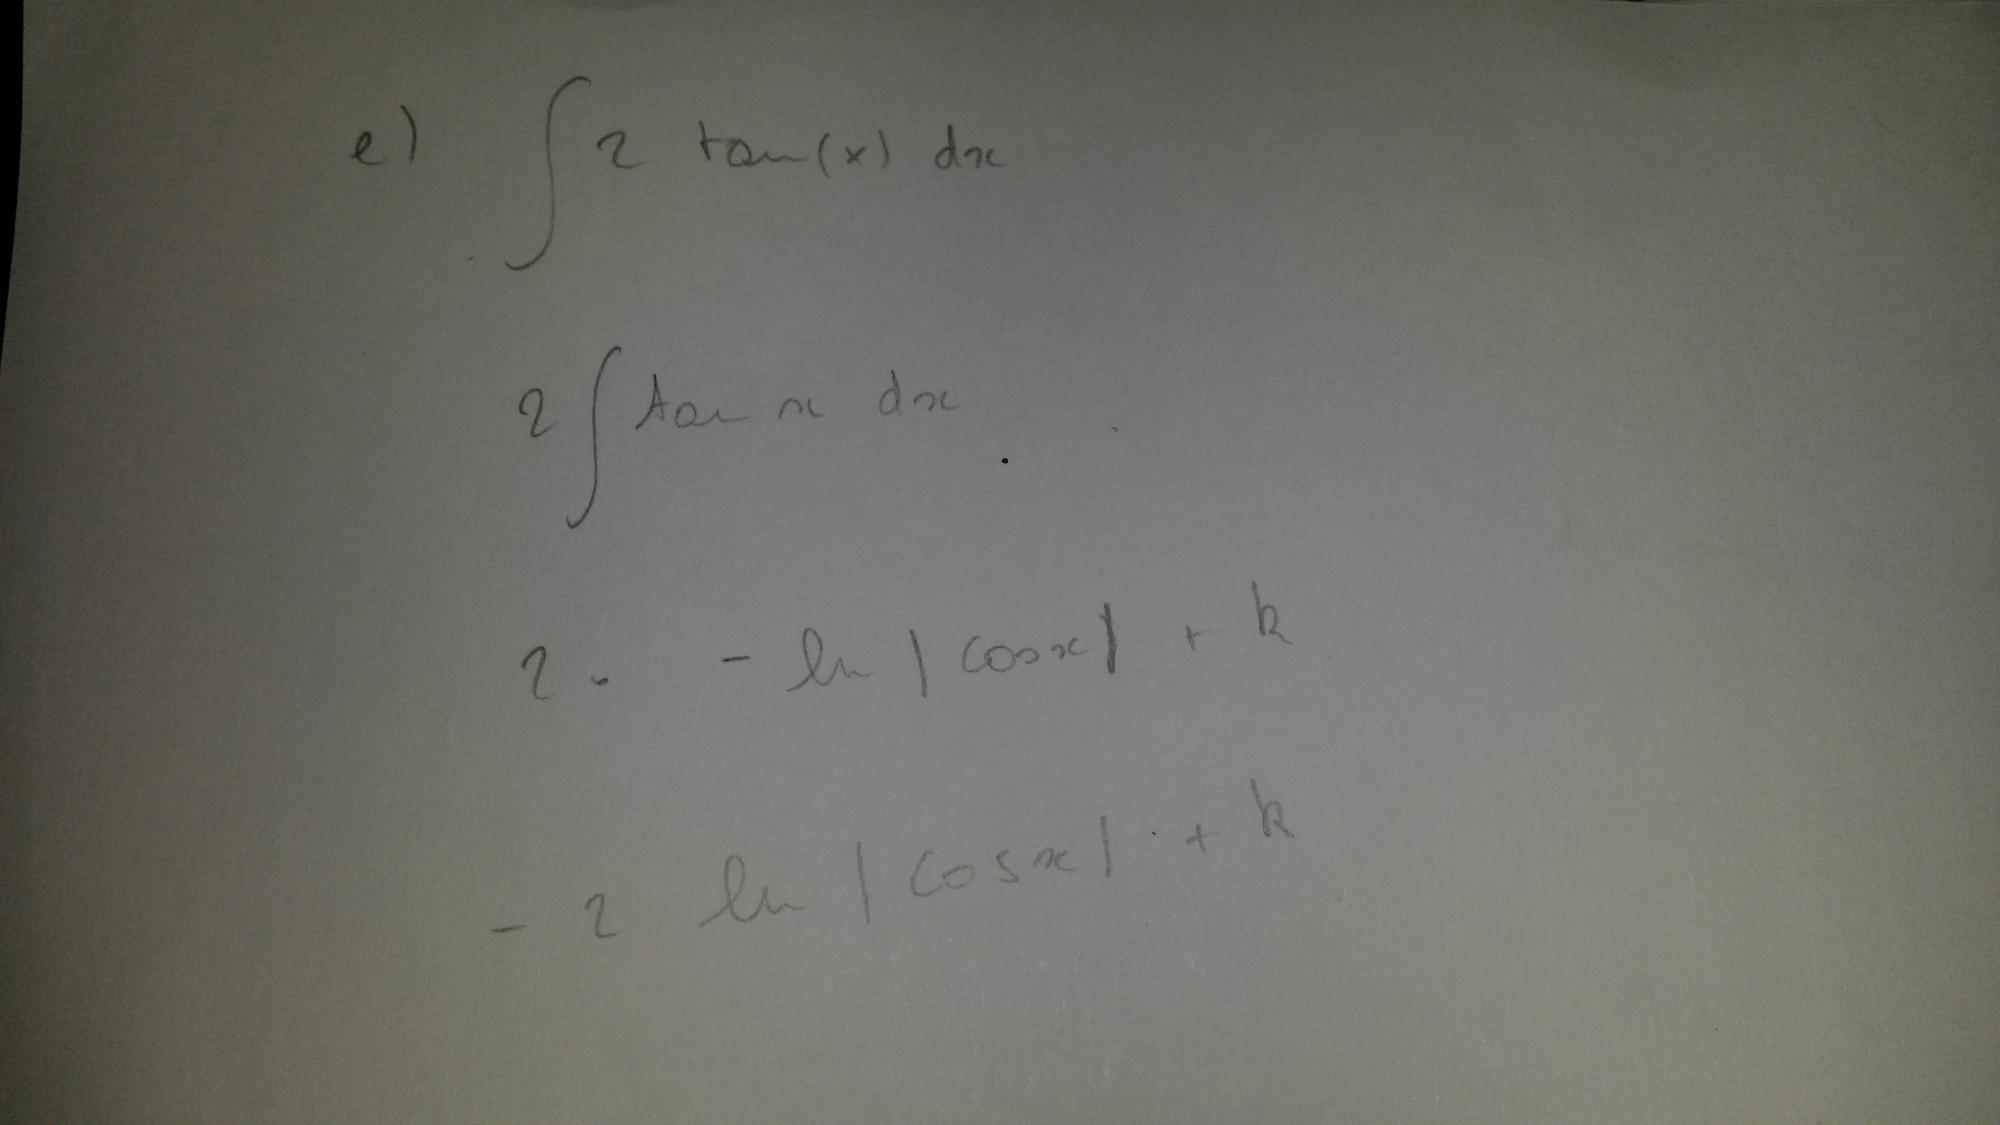 e) ∫ 2 tan(x) dx
2 ∫ tan x dx
2 . - ln |cos x| + k
- 2 ln |cos x| + k